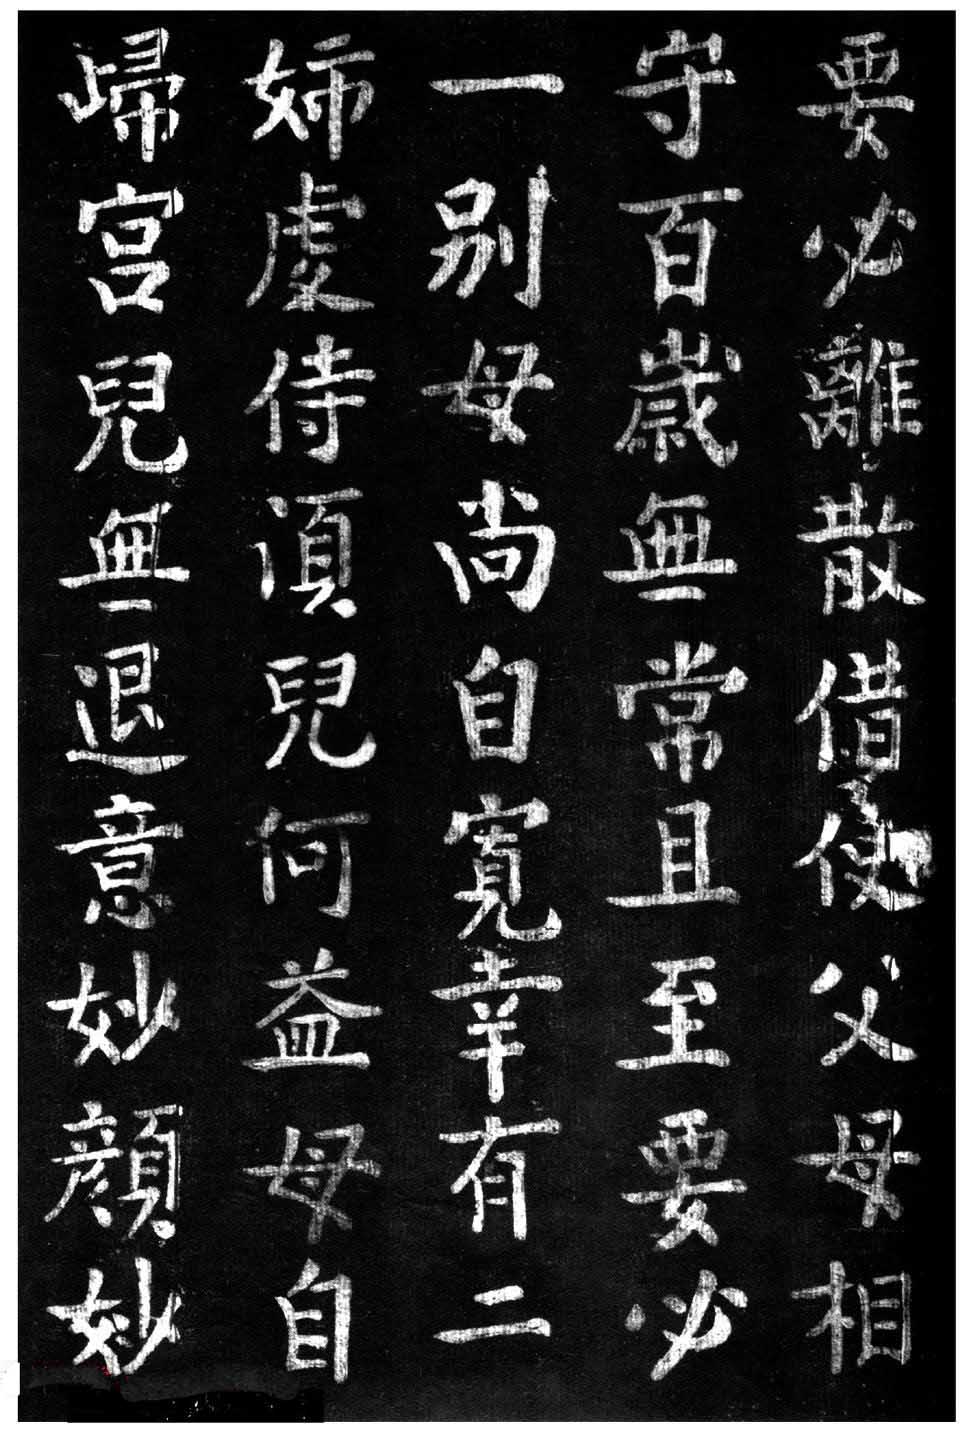 要必離散借使父母相
守百歳無常且至要必
一別母尚自寛幸有二
姉處侍湏兒何益母自
歸宫兒無退意妙顔妙